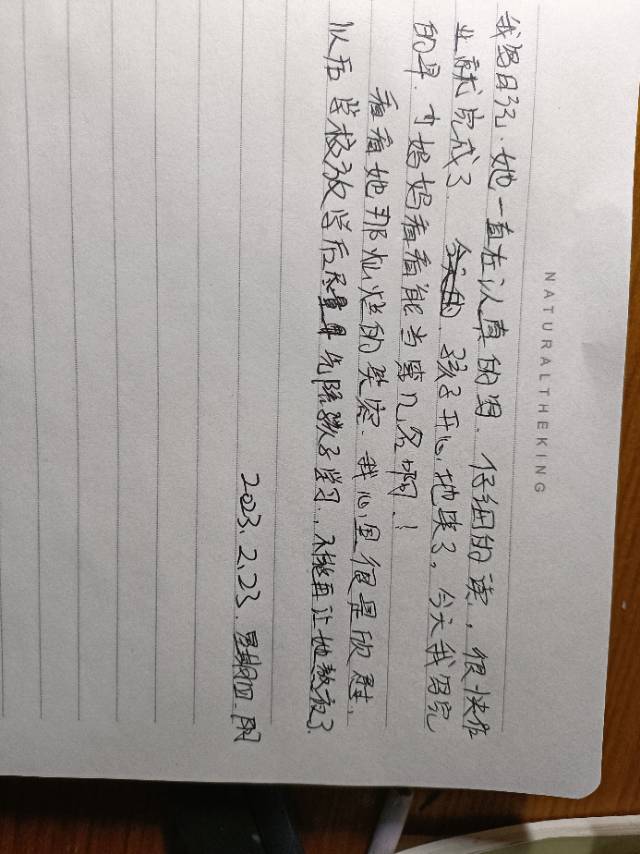 NATURALTHEKING
我写日记.她一直在认真的写、仔细的读,很快作
业就完成了 今天的、孩子开心地笑了。今天我写完
的早.才妈妈看看能当第几名啊!
看看她那灿烂的笑容.我心里很是欣慰、
以后学校放学后尽量早先陪孩子学习.,不能再让她熬夜了
2023.2.23.星期四.阴